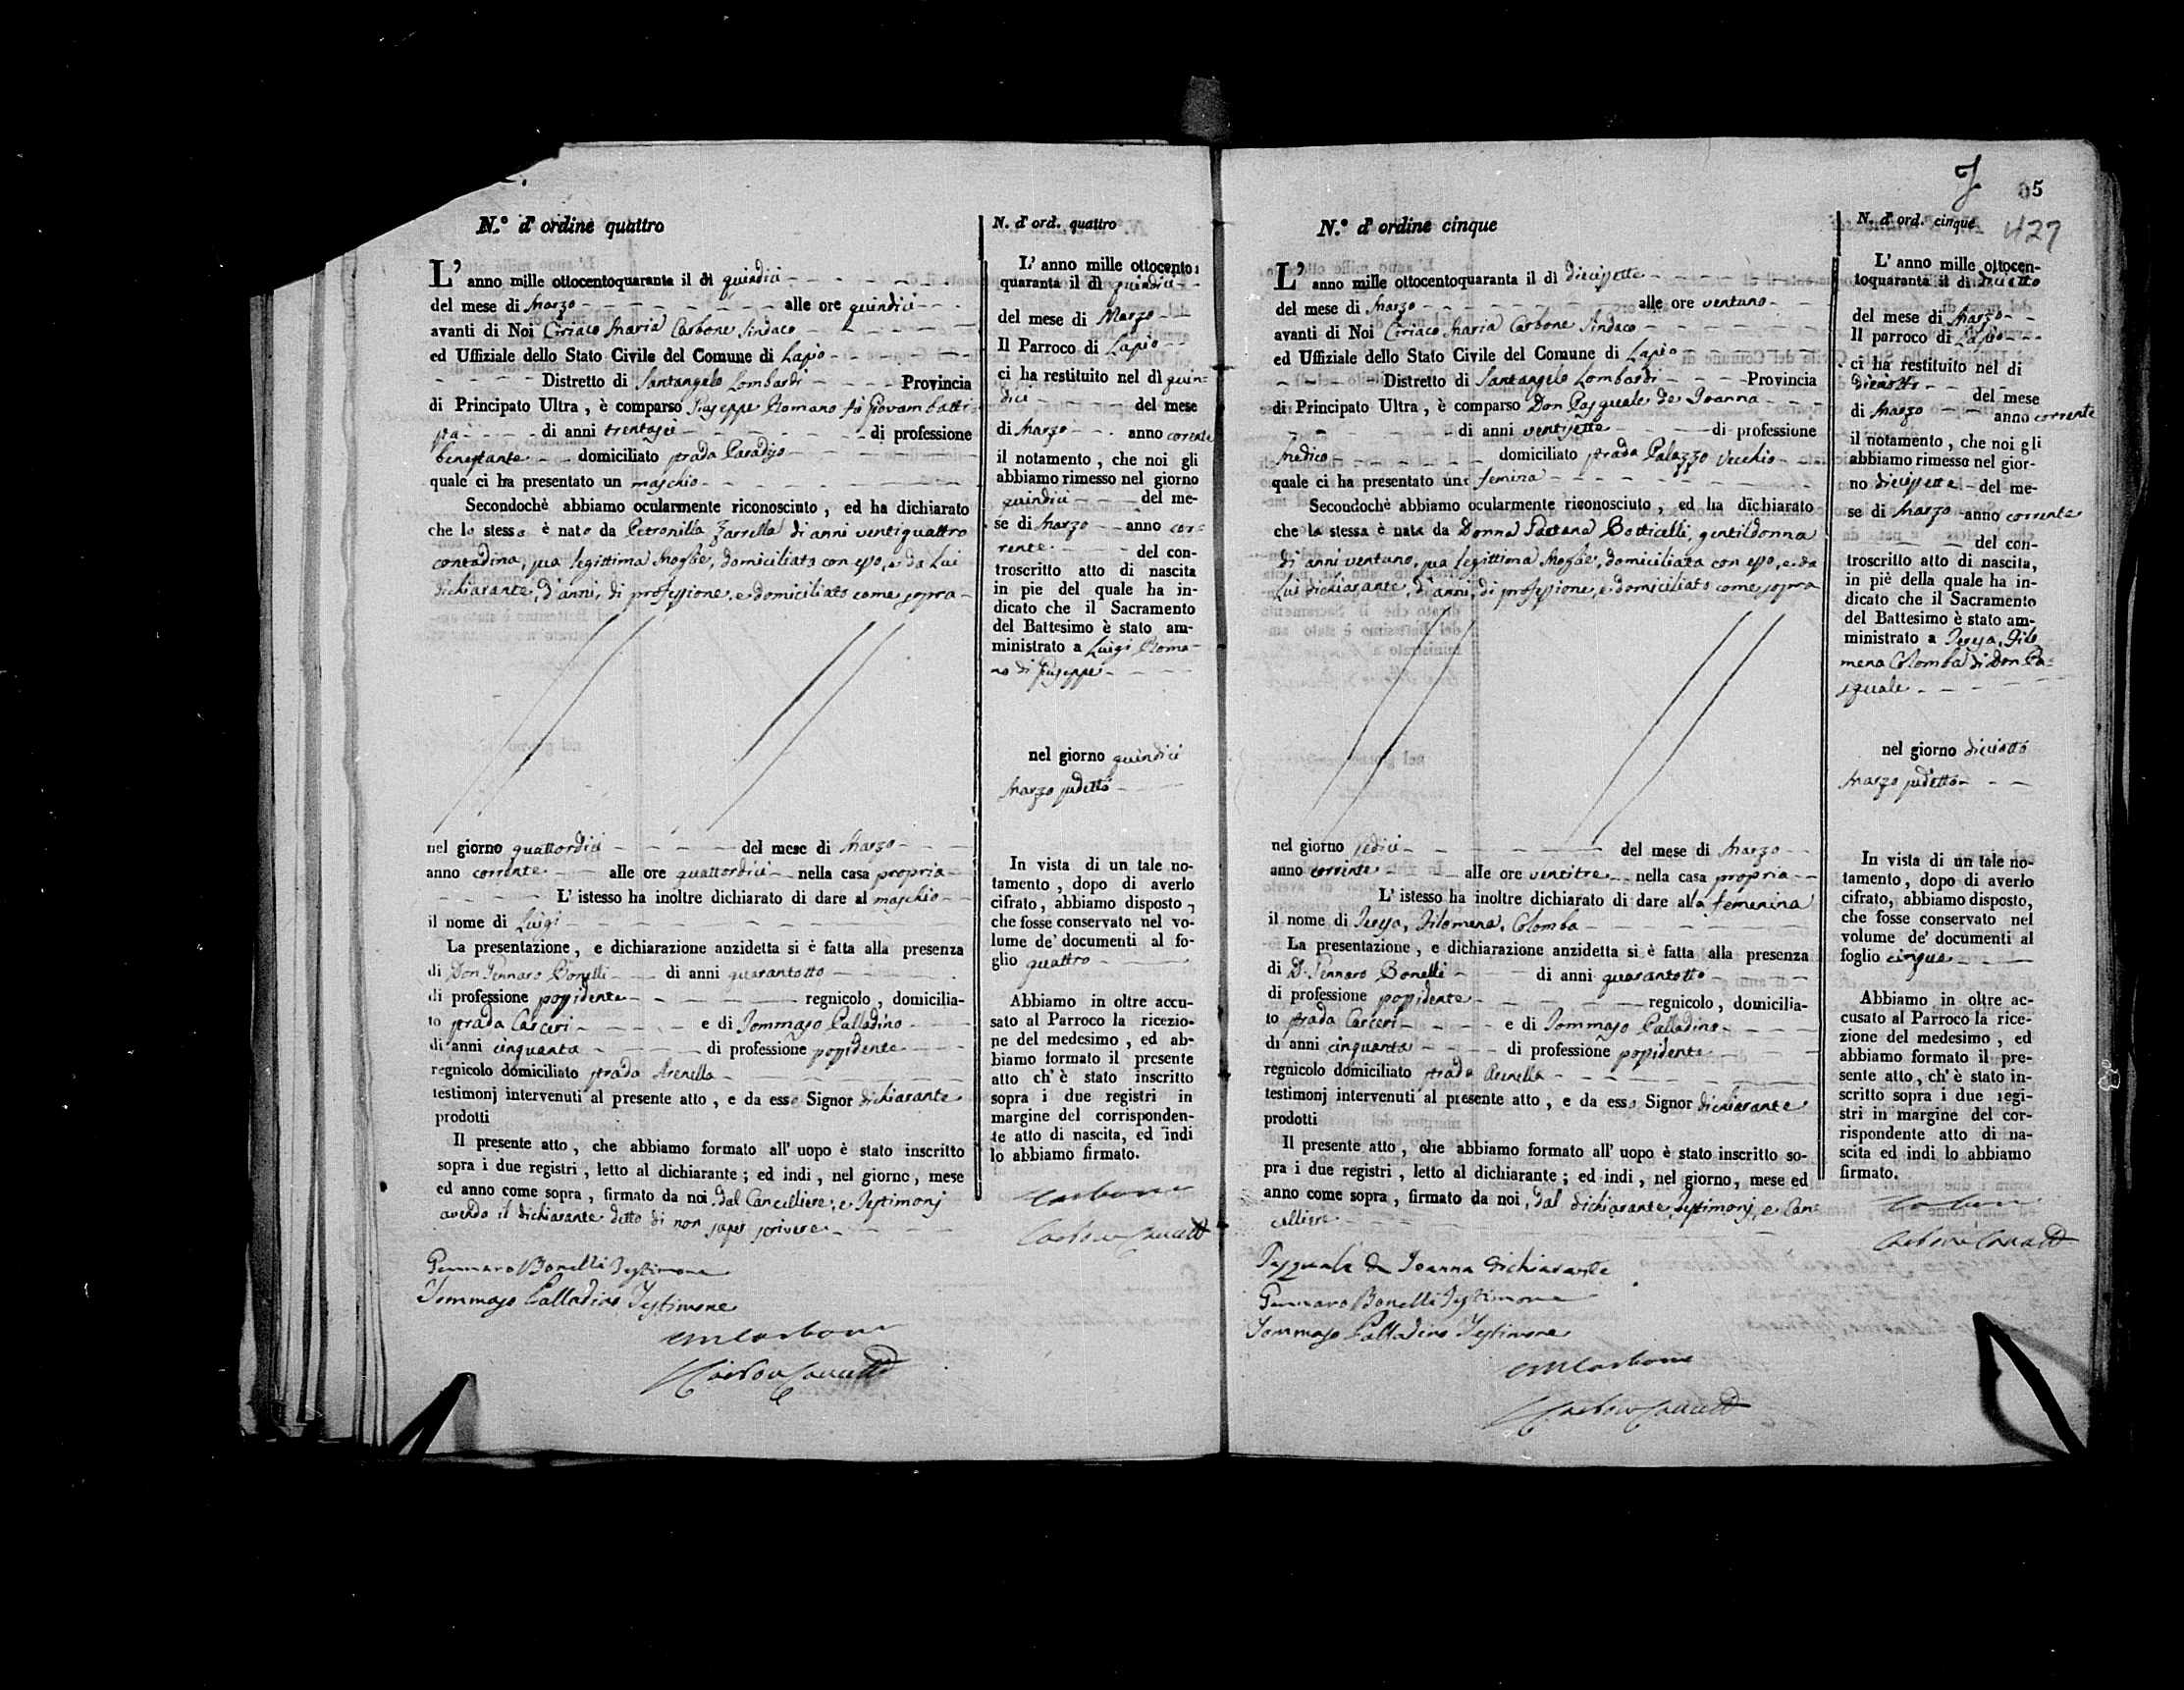 N.º d'ordine quattro
L'anno mille ottocentoquaranta il dì quindici
del mese di Marzo alle ore quindici
avanti di Noi Ciriaco Maria Carbone Sindaco
ed Uffiziale dello Stato Civile del Comune di Lapio
Distretto di Santangelo Lombardi Provincia
di Principato Ultra, è comparso Giuseppe Romano fù Giovambatti-
sta di anni trentasei di professione
benestante domiciliato strada Paradiso
quale ci ha presentato un maschio
Secondochè abbiamo ocularmente riconosciuto, ed ha dichiarato
che lo stesso è nato da Petronilla Zarrella di anni ventiquattro
contadina, sua legittima Moglie, domiciliato con esso, e da Lui
dichiarante, d'anni, di professione, e domiciliato come sopra
nel giorno quattordici del mese di Marzo
anno corrente alle ore quattordici nella casa propria
L'istesso ha inoltre dichiarato di dare al maschio
il nome di Luigi
La presentazione, e dichiarazione anzidetta si è fatta alla presenza
di Don Gennaro Bonelli di anni quarantotto
di professione possidente regnicolo, domicilia-
to strada Carceri e di Tommaso Palladino
di anni cinquanta di professione possidente
regnicolo domiciliato strada Arenella
testimonj intervenuti al presente atto, e da esso Signor dichiarante
prodotti
Il presente atto, che abbiamo formato all'uopo è stato inscritto
sopra i due registri, letto al dichiarante; ed indi, nel giorno, mese
ed anno come sopra, firmato da noi, dal Cancelliere, e Testimonj
avendo il dichiarante detto di non saper scrivere
Gennaro Bonelli Testimone
Tommaso Palladino Testimone
CMCarbone
N. d'ord. quattro
L'anno mille ottocento:
quaranta il dì quindici
del mese di Marzo
Il Parroco di Lapio
ci ha restituito nel dì quin-
dici del mese
di Marzo anno corrente
il notamento, che noi gli
abbiamo rimesso nel giorno
quindici del me-
se di Marzo anno cor-
rente del con-
troscritto atto di nascita
in pie del quale ha in-
dicato che il Sacramento
del Battesimo è stato am-
ministrato a Luigi Roma-
no di Giuseppe
nel giorno quindici
Marzo sudetto
In vista di un tale no-
tamento, dopo di averlo
cifrato, abbiamo disposto,
che fosse conservato nel vo-
lume de' documenti al fo-
glio quattro
Abbiamo in oltre accu-
sato al Parroco la ricezio-
ne del medesimo, ed ab-
biamo formato il presente
atto ch'è stato inscritto
sopra i due registri in
margine del corrisponden-
te atto di nascita, ed indi
lo abbiamo firmato.
Carbone
5
427
N.º d'ordine cinque
L'anno mille ottocentoquaranta il dì diecissette
del mese di Marzo alle ore ventuno
avanti di Noi Ciriaco Maria Carbone Sindaco
ed Uffiziale dello Stato Civile del Comune di Lapio
Distretto di Santangelo Lombardi Provincia
di Principato Ultra, è comparso Don Pasquale de Joanna
di anni ventisette di professione
Medico domiciliato strada Palazzo Vecchio
quale ci ha presentato una femina
Secondochè abbiamo ocularmente riconosciuto, ed ha dichiarato
che la stessa è nata da Donna Gaetana Botticelli, gentildonna
di anni ventuno, sua legittima Moglie, domiciliata con esso, e da
Lui dichiarante, d'anni, di professione, e domiciliato come sopra
nel giorno sedici del mese di Marzo
anno corrente alle ore ventitre nella casa propria
L'istesso ha inoltre dichiarato di dare alla femenina
il nome di Teresa, Filomena, Colomba
La presentazione, e dichiarazione anzidetta si è fatta alla presenza
di D. Gennaro Bonelli di anni quarantotto
di professione possidente regnicolo, domicilia-
to strada Carceri e di Tommaso Palladino
di anni cinquanta di professione possidente
regnicolo domiciliato strada Arenella
testimonj intervenuti al presente atto, e da esso Signor dichiarante
prodotti
Il presente atto, che abbiamo formato all'uopo è stato inscritto so-
pra i due registri, letto al dichiarante; ed indi, nel giorno, mese ed
anno come sopra, firmato da noi, dal dichiarante, Testimonj, e Can-
celliere
Pasquale de Joanna dichiarante
Gennaro Bonelli Testimone
Tommaso Palladino Testimone
CMCarbone
N. d'ord. cinque
L'anno mille ottocen-
toquaranta il di diciotto
del mese di Marzo
Il parroco di Lapio
ci ha restituito nel di
diciotto del mese
di Marzo anno corrente
il notamento, che noi gli
abbiamo rimesso nel gior-
no diecissette del me-
se di Marzo anno corrente
del con-
troscritto atto di nascita,
in piè della quale ha in-
dicato che il Sacramento
del Battesimo è stato am-
ministrato a Teresa, Filo
mena Colomba di Don Pa-
squale
nel giorno diciotto
Marzo sudetto
In vista di un tale no-
tamento, dopo di averlo
cifrato, abbiamo disposto,
che fosse conservato nel
volume de' documenti al
foglio cinque
Abbiamo in oltre ac-
cusato al Parroco la rice-
zione del medesimo, ed
abbiamo formato il pre-
sente atto, ch'è stato in-
scritto sopra i due regi-
stri in margine del cor-
rispondente atto di na-
scita ed indi lo abbiamo
firmato.
Carbone